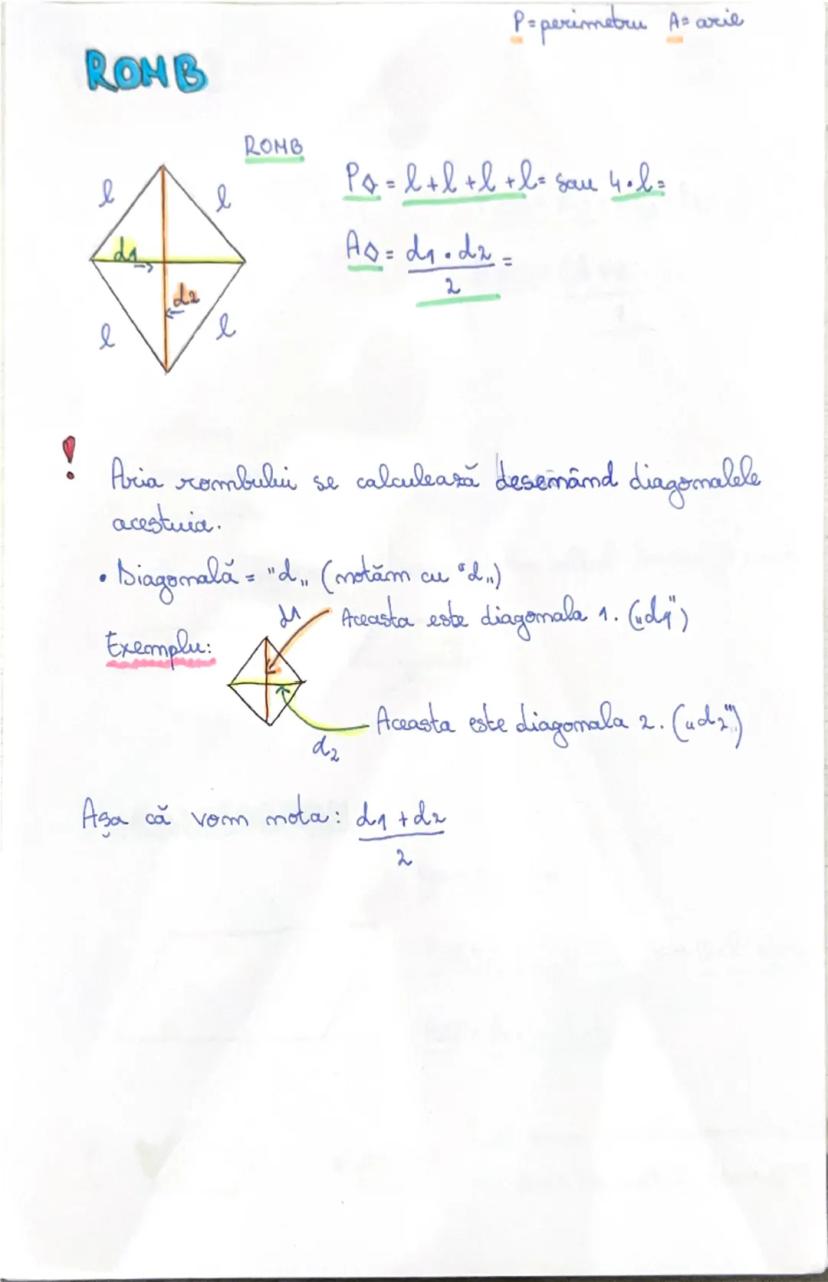 P=perimetru A=arie
ROMB
ROMB
l l
P◊ = l+l+l+l= sau 4·l=
d1
A◊ = d1·d2 =
2
d2
l l
! Aria rombului se calculează desenând diagonalele
acestuia.
• Diagonală = "d„ (notăm cu "d„)
d1 Aceasta este diagonala 1. („d1")
Exemplu:
Aceasta este diagonala 2. („d2")
d2
Așa că vom nota: d1+d2
2